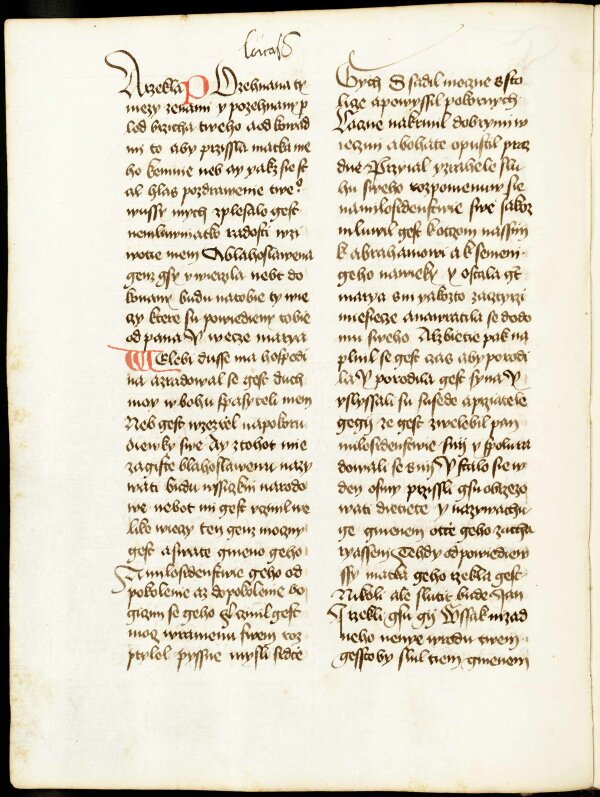 lucas
A rzekla Pozehnana ty
mezy zenami y pozehnany p
lod brzicha tweho a od konad
mi to aby przissla matka me
ho ke mnie neb ay yakz se st
al hlas pozdrawenie twe⁹
wussy mych zplesalo gest
nemluwniatko radosti w zi
wotie mem A blahoslawena
genz gsy vwierzila nebt do
konany budu na tobie ty wie
czy ktere su powiedieny tobie
od pana Y wecze marya
Welebi dusse ma hospodi
na a zradowal se gest duch
moy w bohu spasyteli mem
Neb gest wzezrziel na pokoru
diewky swe Ay z tohot mie
zagiste blahoslawenu nazy
wati budu wssiczkni narodo
we nebot mi gest vczinil we
like wieczy ten genz mocny
gest a swate gmeno geho
A milosrdenstwie geho od
pokolenie az do pokolenie bo
gicim se geho Vczinil gest
moc w ramenu swem roz
ptylel pyssne mysli srdce
gych Ssadil mocne s sto
lice a powyssil pokornych
Lacne nakrmil dobrymi w
ieczmi a bohate opustil praz
dne Przyial yzrahele slu
hu sweho rozpomenuw se
na milosrdenstwie swe Jakoz
mluwil gest k otczom nassim
k abrahamowi a k semeni
geho na wieky Y ostala gt
marya s ni yakozto za trzi
miesiecze a nawratila se do do
mu sweho Alzbietie pak na
plnil se gest czas aby porodi
la Y porodila gest syna Y
vslyssali su susedo a prziatele
gegij ze gest zwelebil pan
milosrdenstwie s nij y spolu ra
dowali se s nij Y stalo se w
den osmy przissli gsu obrzezo
wati dietiete y nazywachu
ge gmenem otce geho zacha
ryassem Tehdy odpowiediew
ssy matka geho rzekla gest
Nikoli ale sluti bude Jan
I rzekli gsu gij Wssak nizad
neho nenye w rodu twem
gessto by slul tiem gmenem